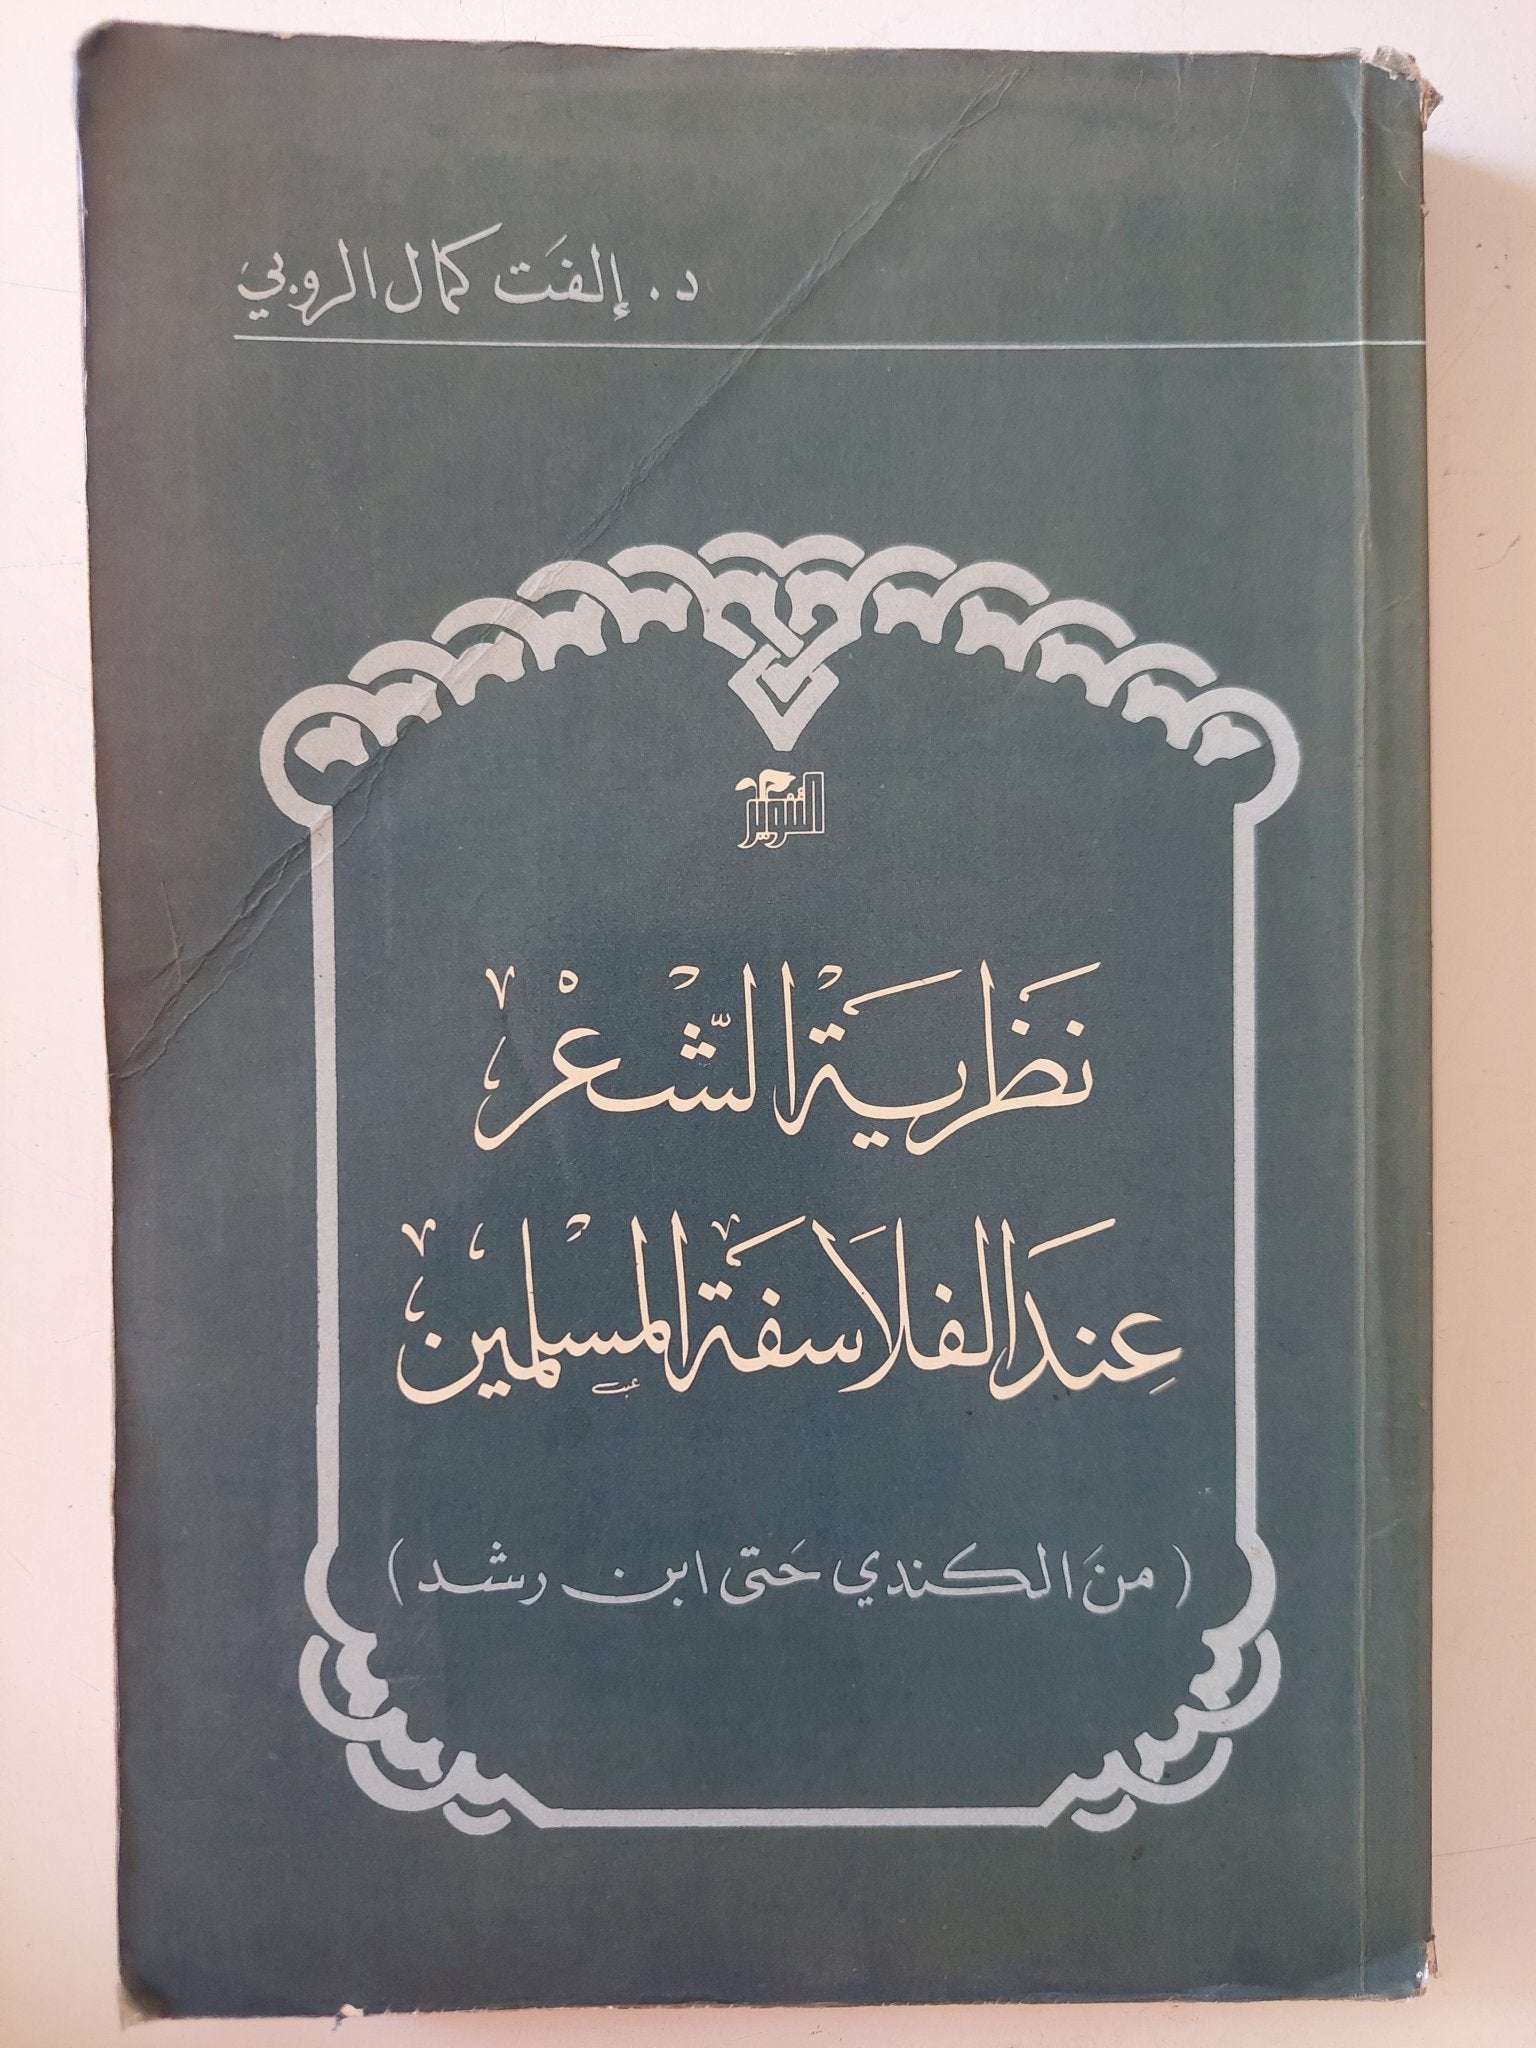 د. إلفَت كمال الروبي
التنوير
نظَرية الشّعْر
عِندَ الفلاَسفَة المسْلمين
(منَ الكندي حَتى ابن رشد)